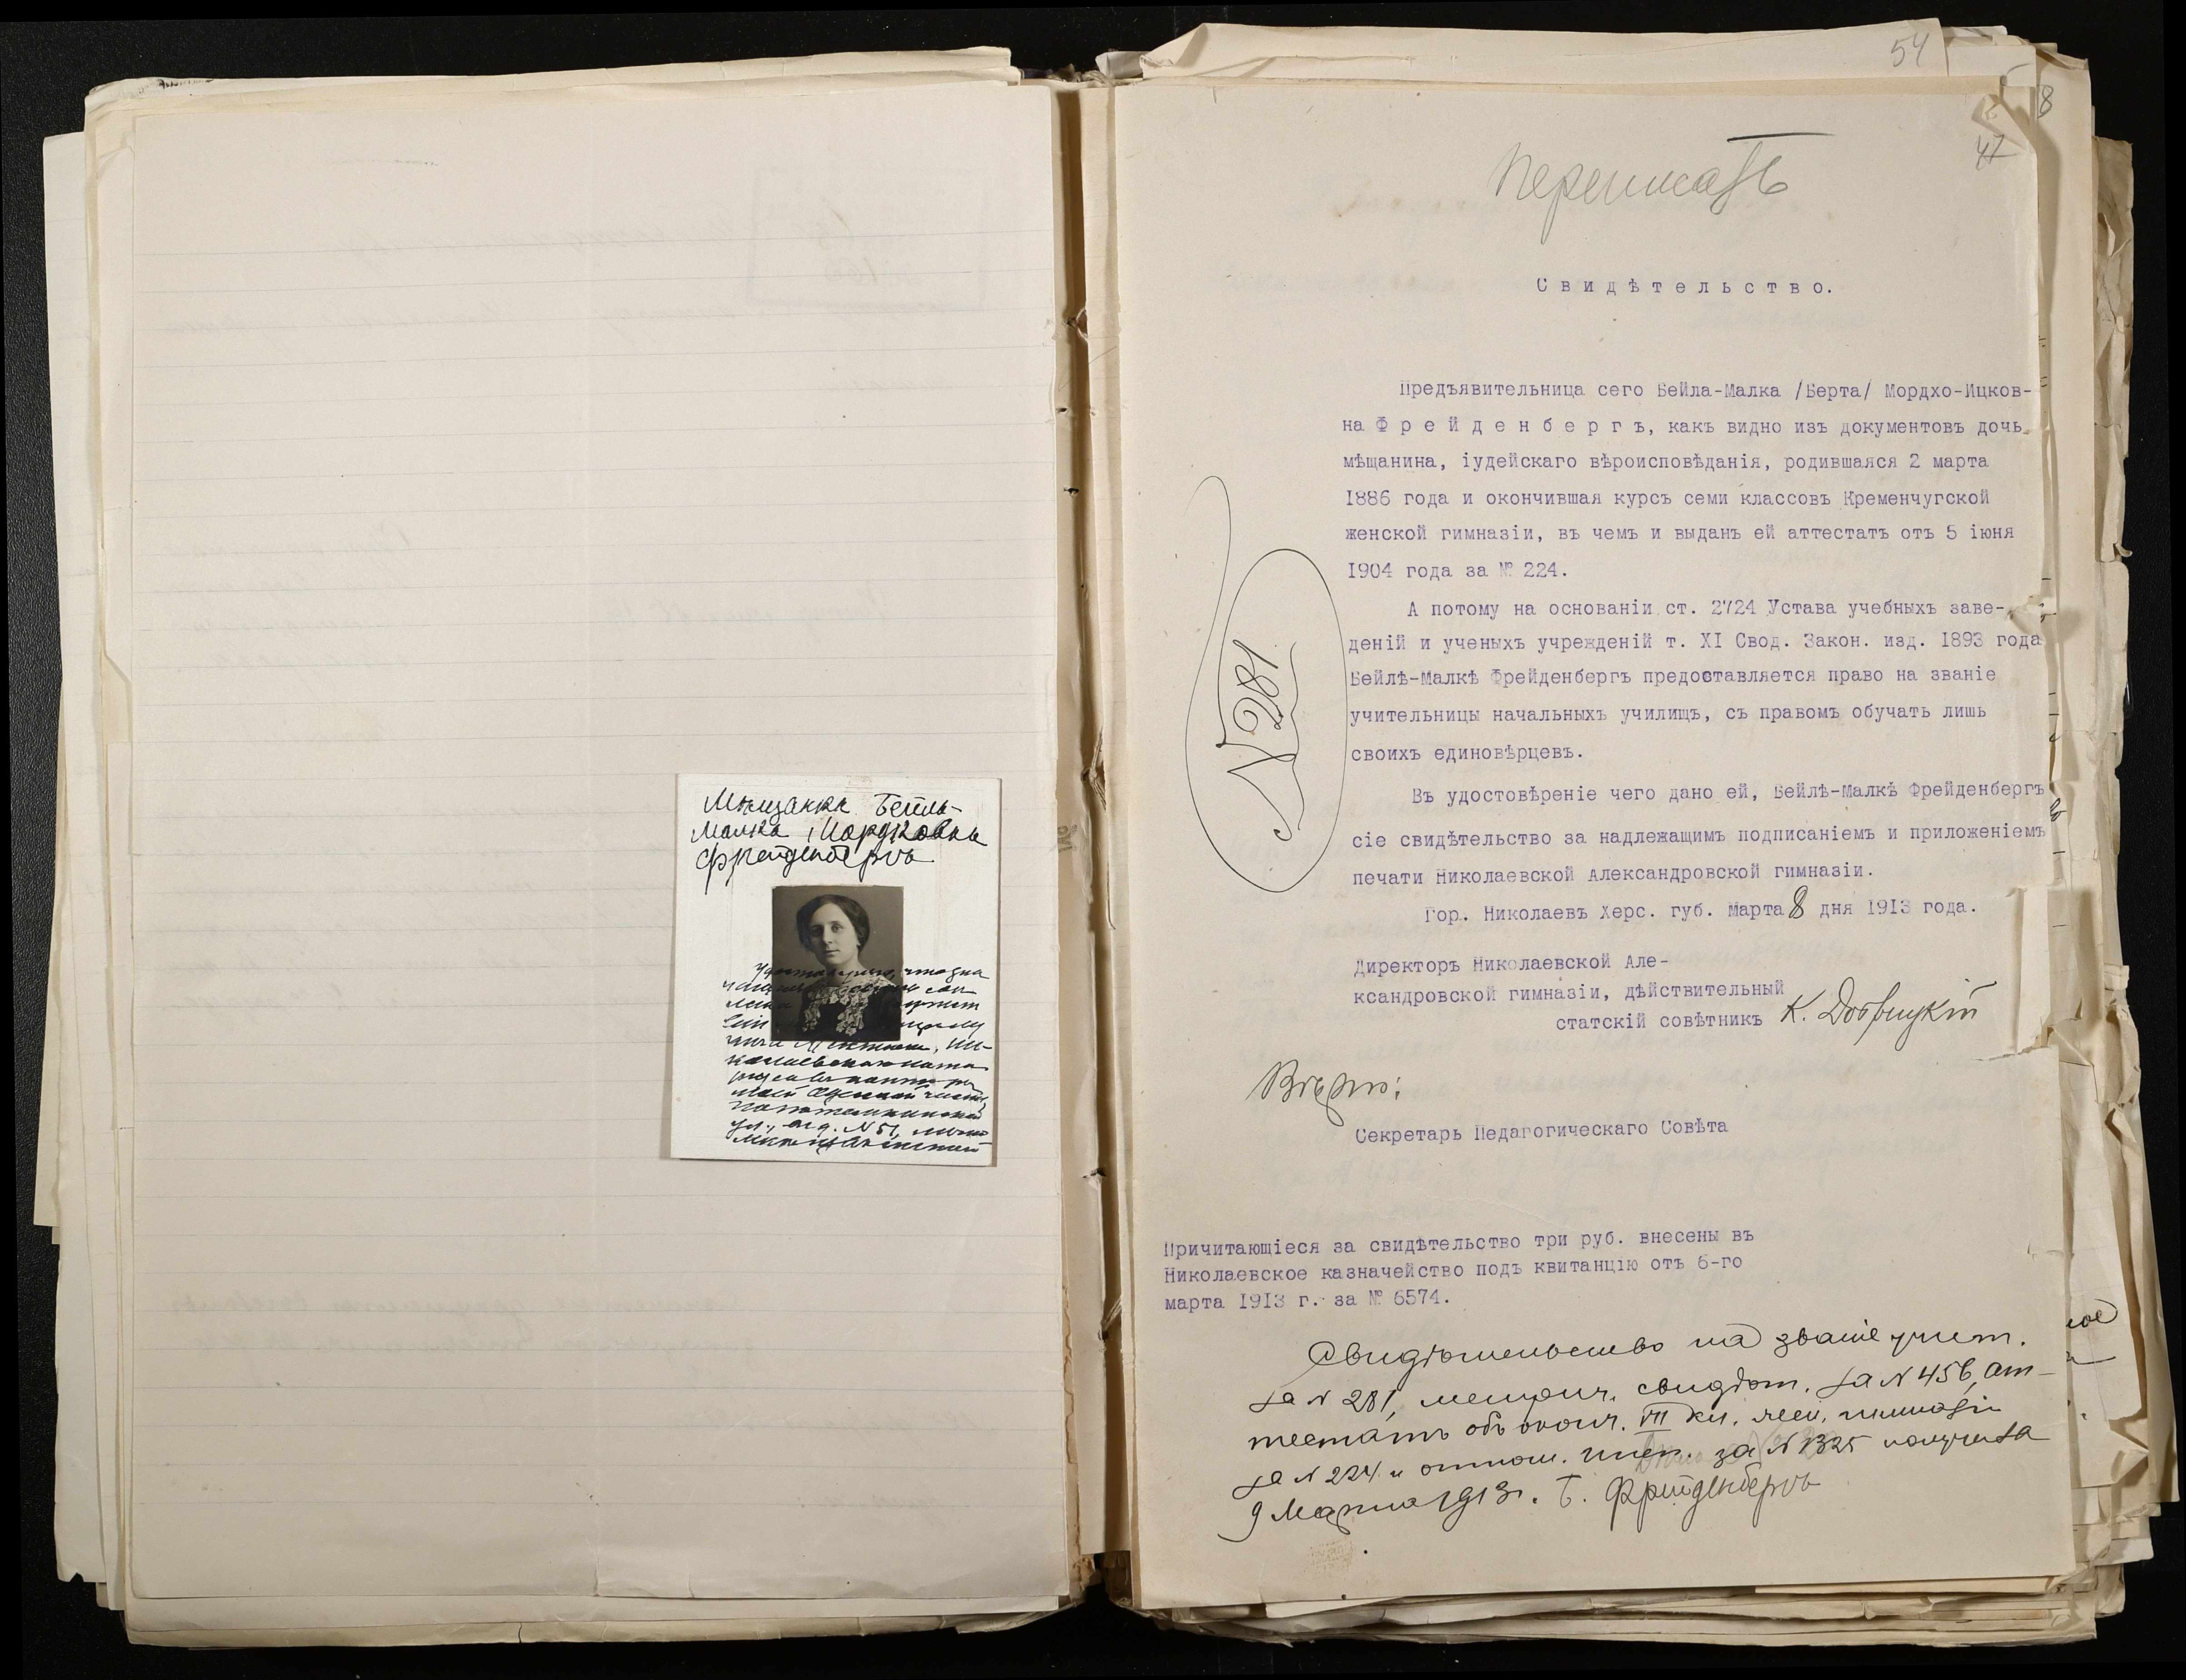 Мѣщанка Бейля-
Малка Мордковна
Фрейденбергъ
Удостовѣряю, что
Ни-
колаевскаго нота-
ул., д. N 51,
54
8
47
Переписать
Свидѣтельство.
Предъявительница сего Бейла-Малка /Берта/ Мордхо-Ицков-
на Фрейденбергъ, какъ видно изъ документовъ дочь
мѣщанина, іудейскаго вѣроисповѣданія, родившаяся 2 марта
1886 года и окончившая курсъ семи классовъ Кременчугской
женской гимназіи, въ чемъ и выданъ ей аттестатъ отъ 5 іюня
1904 года за № 224.
А потому на основаніи ст. 2724 Устава учебныхъ заве-
деній и ученыхъ учрежденій т. XI Свод. Закон. изд. 1893 года
Бейлѣ-Малкѣ Фрейденбергъ предоставляется право на званіе
учительницы начальныхъ училищъ, съ правомъ обучать лишь
своихъ единовѣрцевъ.
Въ удостовѣреніе чего дано ей, Бейлѣ-Малкѣ Фрейденбергъ
сіе свидѣтельство за надлежащимъ подписаніемъ и приложеніемъ
печати Николаевской Александровской гимназіи.
Гор. Николаевъ Херс. губ. Марта 8 дня 1913 года.
N 281
Директоръ Николаевской Але-
ксандровской гимназіи, дѣйствительный
статскій совѣтникъ К.
Вѣрно:
Секретарь Педагогическаго Совѣта
Причитающіеся за свидѣтельство три руб. внесены въ
Николаевское казначейство подъ квитанцію отъ 6-го
марта 1913 г. за № 6574.
Свидѣтельство на званіе учит.
за N 281, метрич. свидѣт. за N 456, ат-
тестатъ объ оконч. VII кл. жен. гимназіи
за N 224 и отнош. за N 1325 получила
9 Марта 1913 г. Б. Фрейденбергъ